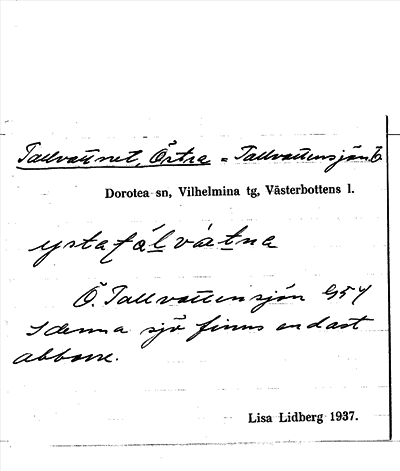 Tallvattnet, Östra = Tallvattensjön Ö
Dorotea sn, Vilhelmina tg, Västerbottens l.
ystatálvátna
Ö. Tallvattensjön G54
I denna sjö finns endast
abborre.
Lisa Lidberg 1937.